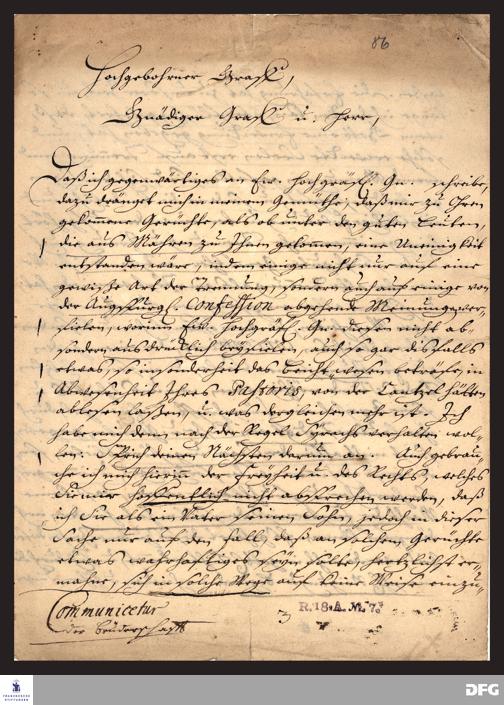 86
Hochgebohrner Graff,
Gnädiger Graff u. Herr,
Daß ich gegenwärtiges an Ew. Hochgräfl. Gn. schreibe,
dazu dränget mich in meinem Gemüthe, daß mir zu Ohren
gekommene Gerüchte, als ob unter den guten Leuten,
die aus Mähren zu Ihnen gekommen, eine Uneinigkeit
entstanden wäre, indem einige nicht nur auf eine
gewisse Art der Trennung, sondern auch auf einige von
der Augspurg. Confession abgehende Meinungen ver-
fielen, worinn Ew. Hochgräfl. Gn. diesen nicht ab,
sondern ausdrücklich beyfielen, auch so gar disfalls
etwas, so insonderheit das beicht-wesen beträfe, in
Abwesenheit Ihres Pastoris, von der Cantzel hätten
ablesen lassen, u. was dergleichen mehr ist. Ich
habe mich denn nach der Regel Syrachs verhalten wol-
len: Sprich deinen Nächsten darum an. Auch gebrau-
che ich mich hierin der Freyheit u. des Rechts, welches
Sie mir hoffentlich nicht absprechen werden, daß
ich Sie als ein Vater seinen Sohn, jedoch in dieser
Sache nur auf den Fall, daß an solchem Gerüchte
etwas wahrhaftiges seyn solte, hertzlichst er-
mahne, sich in solche Wege auf keine Weise einzu-
Communicetur
der Brüderschafft
3
R. 18. A. No. 7
FRANCKESCHE STIFTUNGEN
DFG